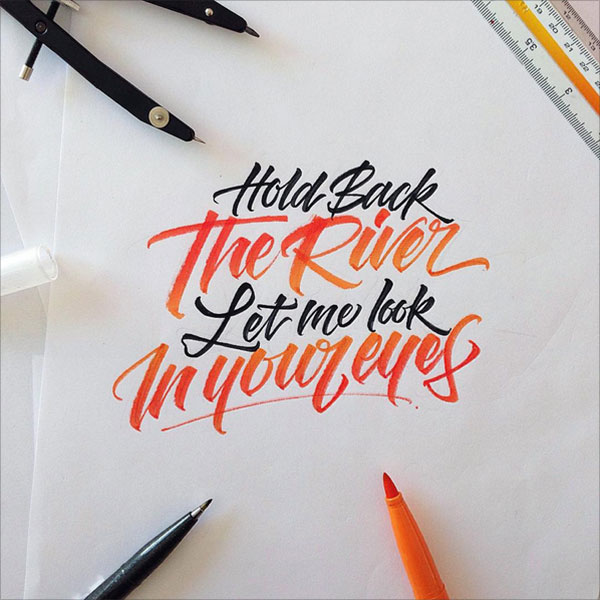 Hold Back
The River
Let me look
In your eyes